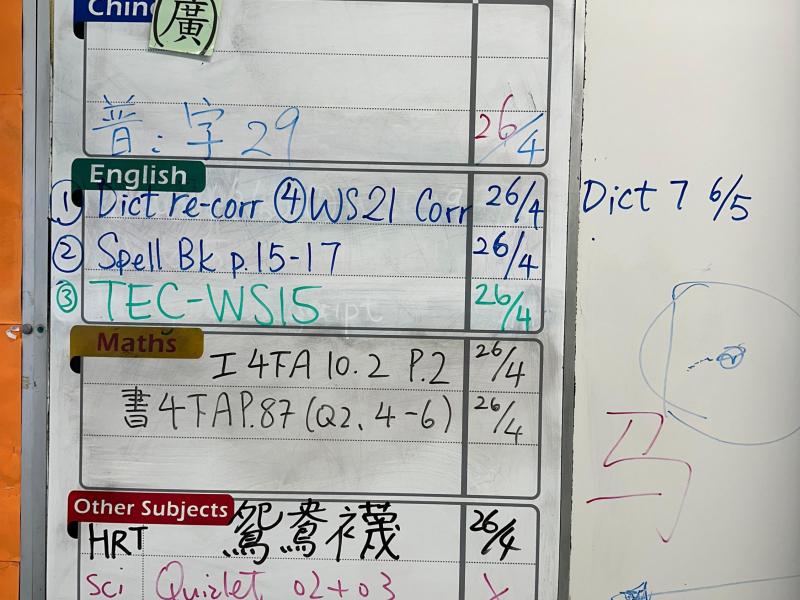 Chin
(廣)
普:字29 26/4
English
① Dict re-corr ④ WS21 Corr 26/4 Dict 7 6/5
② Spell Bk p.15-17 26/4
③ TEC-WS15 26/4
Maths
工4下A 10.2 P.2 26/4
書4下A P.87 (Q2、4-6) 26/4
马
Other Subjects
HRT 鴛鴦襪 26/4
Sci Quizlet 02+03